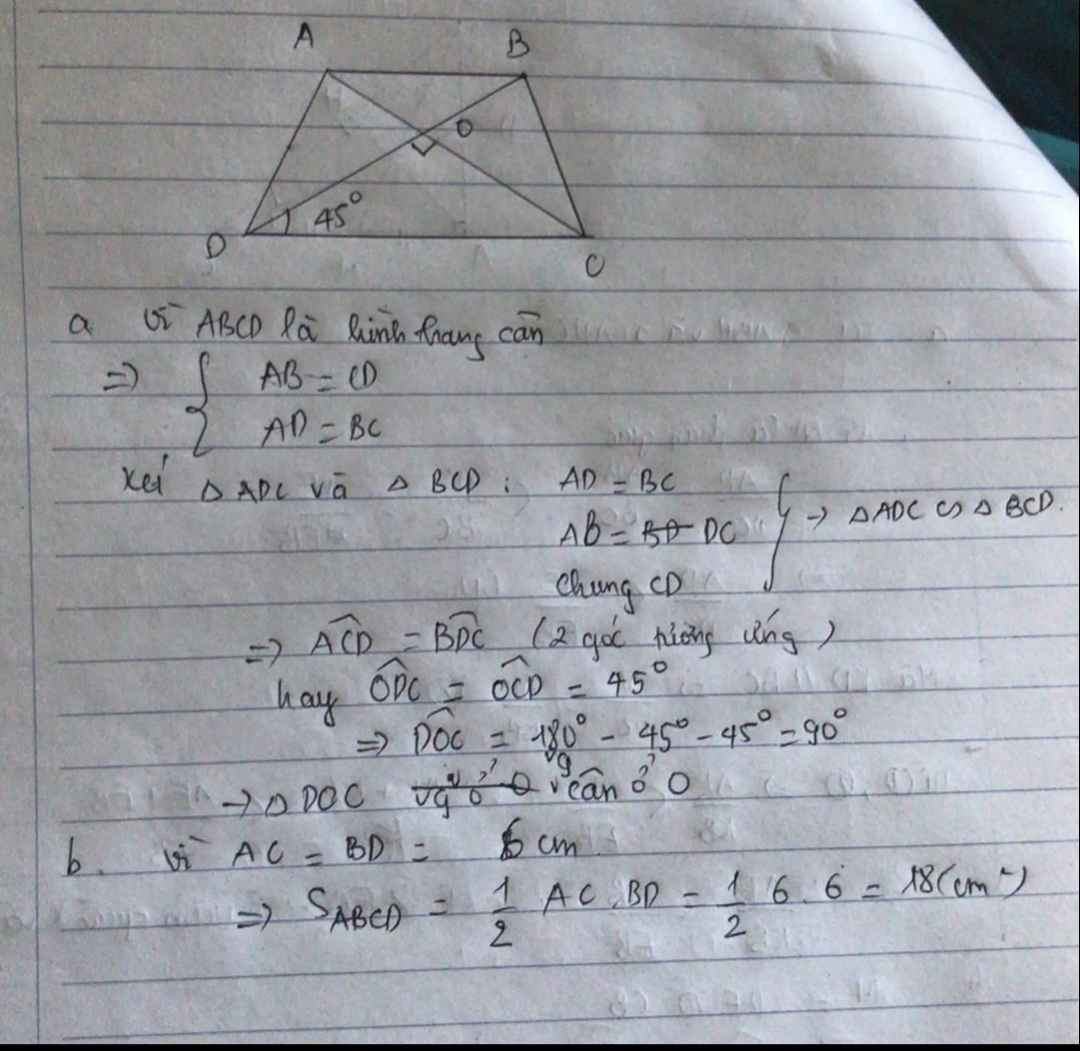 A B
O
45°
D C
a vì ABCD là hình thang cân
=> { AB = CD
AD = BC
Xét △ ADC và △ BCD : AD = BC
AB = BD DC } → △ ADC ∽ △ BCD.
Chung CD
=> ACD = BDC (2 góc tương ứng)
hay ODC = OCD = 45°
=> DOC = 180° - 45° - 45° = 90°
→ △ DOC vg ở O vg cân ở O
b. vì AC = BD = 6 cm
=> S_ABCD = 1/2 AC . BD = 1/2 6 . 6 = 18 (cm²)